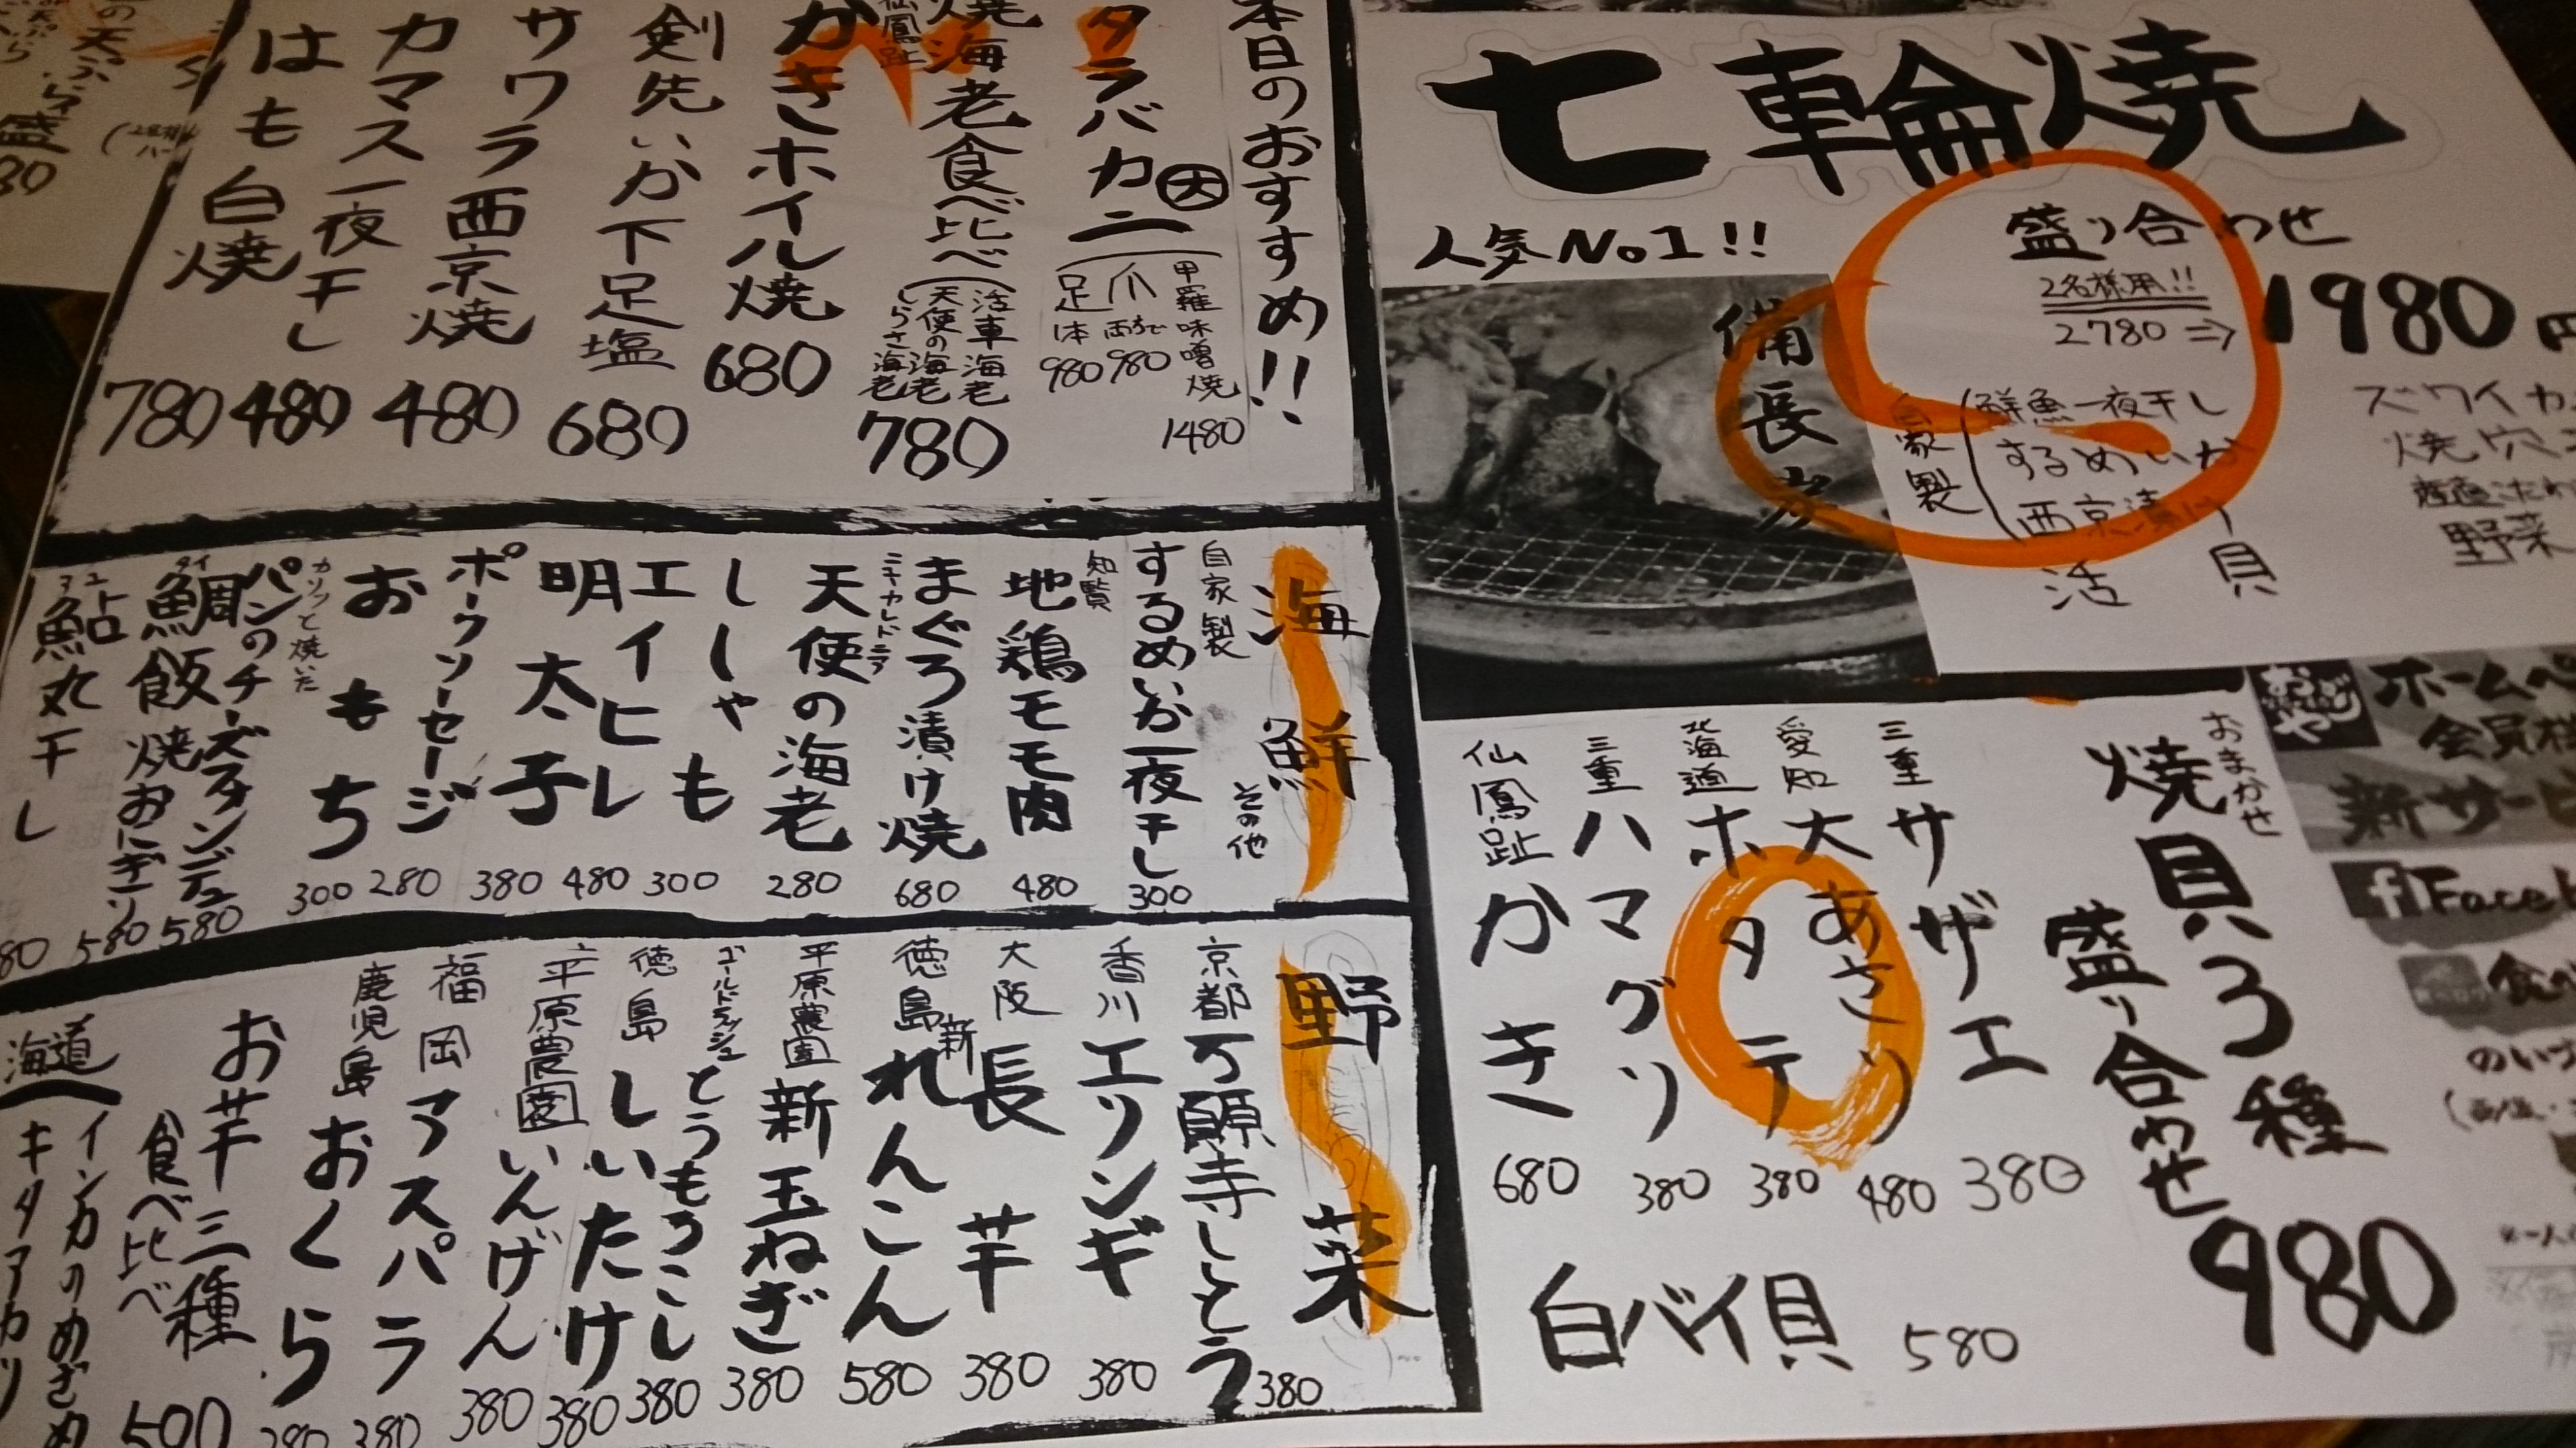 七輪焼
人気No1!!
備長炭
盛り合わせ
2名様用!!
2780⇒1980円
自家製
鮮魚一夜干し
するめいか
西京漬け
活貝
野菜
本日のおすすめ!!
タラバカニ
甲羅味噌焼 1480
爪 980
足 980
焼海老食べ比べ
活車海老
天使の海老
しらさ海老
780
仙鳳趾
かきホイル焼 680
剣先いか下足塩 680
サワラ西京焼 480
カマス一夜干し 480
はも白焼 780
海鮮 その他
自家製 するめいか一夜干し 300
知覧 地鶏モモ肉 480
まぐろ漬け焼 680
ニューカレドニア 天使の海老 280
ししゃも 300
エイヒレ 480
明太子 380
ポークソーセージ 280
おもち 300
カリッと焼いた パンのチーズタンデュ 580
鯛飯焼おにぎり 580
鮎丸干し
野菜
京都 万願寺ししとう 380
香川 エリンギ 380
大阪 長芋 380
徳島 新れんこん 580
平原農園 新玉ねぎ 380
ゴールドラッシュ とうもろこし 380
徳島 しいたけ 380
平原農園 いんげん 380
福岡 アスパラ 380
鹿児島 おくら
お芋三種食べ比べ 500
インカのめざめ
キタアカリ
おまかせ
焼貝3種
盛り合わせ
980
三重 サザエ 380
愛知 大あさり 480
北海道 ホタテ 380
三重 ハマグリ 380
仙鳳趾 かき 680
白バイ貝 580
会員様